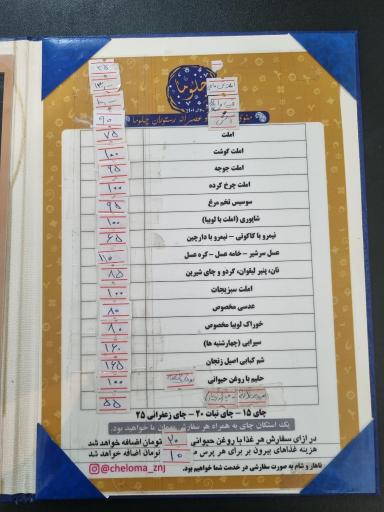 چلوما
منو
و عصرانه رستوران چلوما
۹۰
املت ۷۵
املت گوشت ۱۰۰
املت جوجه ۹۵
املت چرخ کرده ۱۰۰
سوسیس تخم مرغ ۹۵
شاپوری (املت با لوبیا) ۱۰۰
نیمرو با کاکوتی – نیمرو با دارچین ۶۵
عسل سرشیر – خامه عسل – کره عسل ۱۱۰
نان، پنیر لیقوان، گردو و چای شیرین ۸۵
املت سبزیجات ۱۰۰
عدسی مخصوص ۸۰
خوراک لوبیا مخصوص ۸۰
سیرابی (چهارشنبه ها) ۱۶۰
شم کبابی اصیل زنجان ۱۲۵
حلیم با روغن حیوانی ۱۰۰
۵۵
چای ۱۵ – چای نبات ۲۰ – چای زعفرانی ۲۵
یک استکان چای به همراه هر سفارش مهمان ما خواهید بود.
در ازای سفارش هر غذا با روغن حیوانی ۲۰ تومان اضافه خواهد شد
هزینه غذاهای بیرون بر برای هر پرس ۱۰ تومان اضافه خواهد شد
ناهار و شام به صورت سفارشی در خدمت شما خواهیم بود.
@cheloma_znj